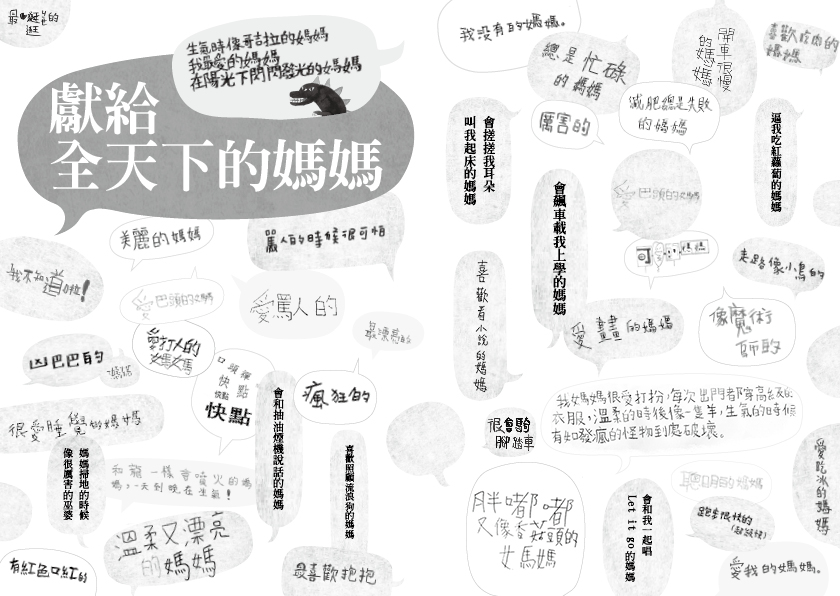 最愛逛的
逛
生氣時像哥吉拉的媽媽
我最愛的媽媽
在陽光下閃閃發光的媽媽
獻給
全天下的媽媽
美麗的媽媽
罵人的時候很可怕
我不知道啦!
愛巴頭的媽媽
愛罵人的
最漂亮的
愛打人的
媽媽
凶巴巴的
媽媽
口頭禪
快點
快點
快點
瘋狂的
會和抽油煙機說話的媽媽
很愛睡覺的媽媽
媽媽掃地的時候
像很厲害的巫婆
和龍一樣會噴火的媽
媽,一天到晚在生氣!
喜歡照顧流浪狗的媽媽
溫柔又漂亮
的媽媽
有紅色口紅的
最喜歡抱抱
我沒有的媽媽。
總是忙碌
的媽媽
開車很慢
的媽媽
喜歡吃肉的
媽媽
會搓搓我耳朵
叫我起床的媽媽
厲害的
減肥總是失敗
的媽媽
逼我吃紅蘿蔔的媽媽
會飆車載我上學的媽媽
愛巴頭的媽媽
走路像小鳥的
喜歡看小說的媽媽
愛畫畫的媽媽
像魔術
師的
我媽媽很愛打扮,每次出門都穿高級的
衣服,溫柔的時後像一隻羊,生氣的時候
有如發瘋的怪物到處破壞。
很會騎
腳踏車
愛吃冰的媽媽
胖嘟嘟
又像香菇頭的
女媽媽
會和我一起唱
Let it go的媽媽
聰明的媽媽
跑步很快的
(超級快)
愛我的媽媽。